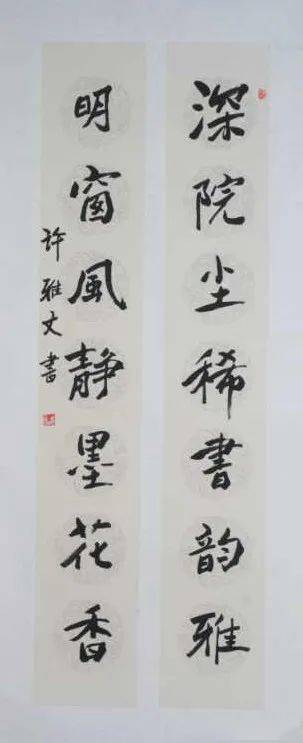 深院尘稀書韵雅
明窗風静墨花香
許雅文書